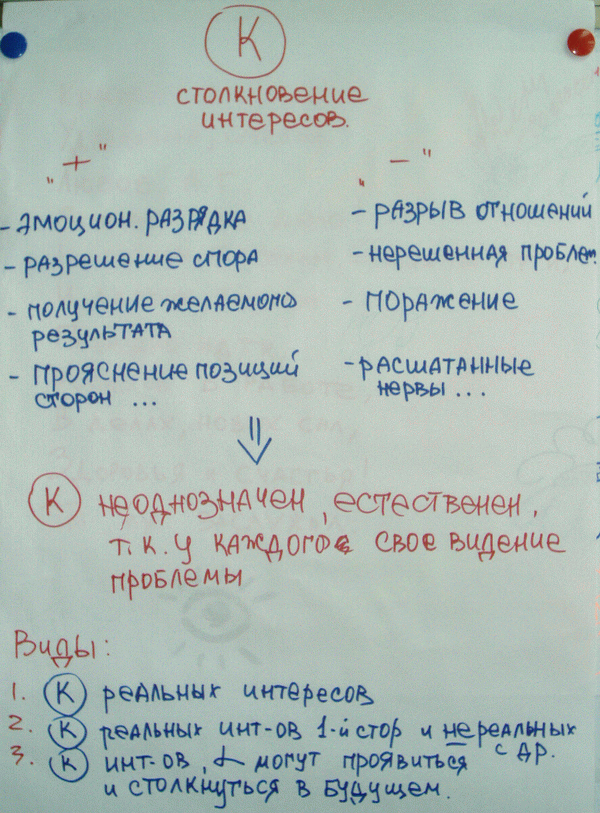 К
столкновение
интересов.
"+"
"–"
- эмоцион. разрядка
- разрешение спора
- получение желаемого
результата
- прояснение позиций
сторон ...
- разрыв отношений
- нерешенная проблем
- поражение
- расшатанные
нервы ...
К неоднозначен, естественен,
т.к. у каждого свое видение
проблемы
Виды:
1. К реальных интересов
2. К реальных инт-ов 1-й стор и нереальных
с др.
3. К инт-ов, могут проявиться
и столкнуться в будущем.